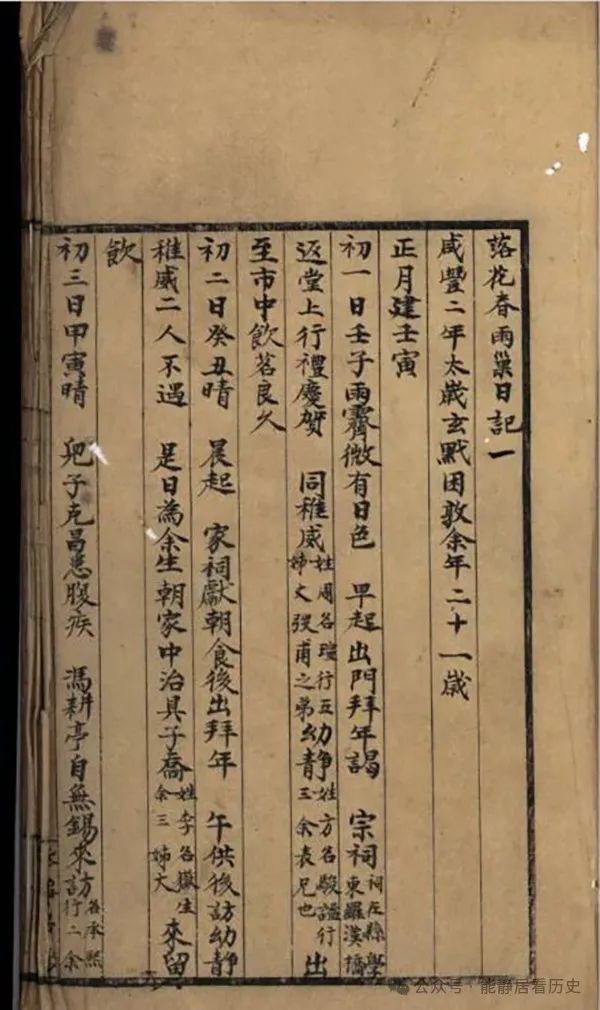 落花春雨巢日記一
咸豐二年太歲玄黓困敦余年二十一歲
正月建壬寅
初一日壬子雨霽微有日色 早起出門拜年謁 宗祠祠在縣學東羅漢橋
返堂上行禮慶賀 同稚威姓周名行五姊丈弢甫之弟幼靜姓方名駿謨行三余表兄也出
至市中飲茗良久
初二日癸丑晴 晨起 家祠獻朝食後出拜年 午供後訪幼靜
稚威二人不遇 是日為余生朝家中治具子喬姓李名嶽生余三姊丈來留
飲
初三日甲寅晴 兒子克昌患腹疾 馮耕亭自無錫來訪名承熙行二余
公众号·能静居看历史